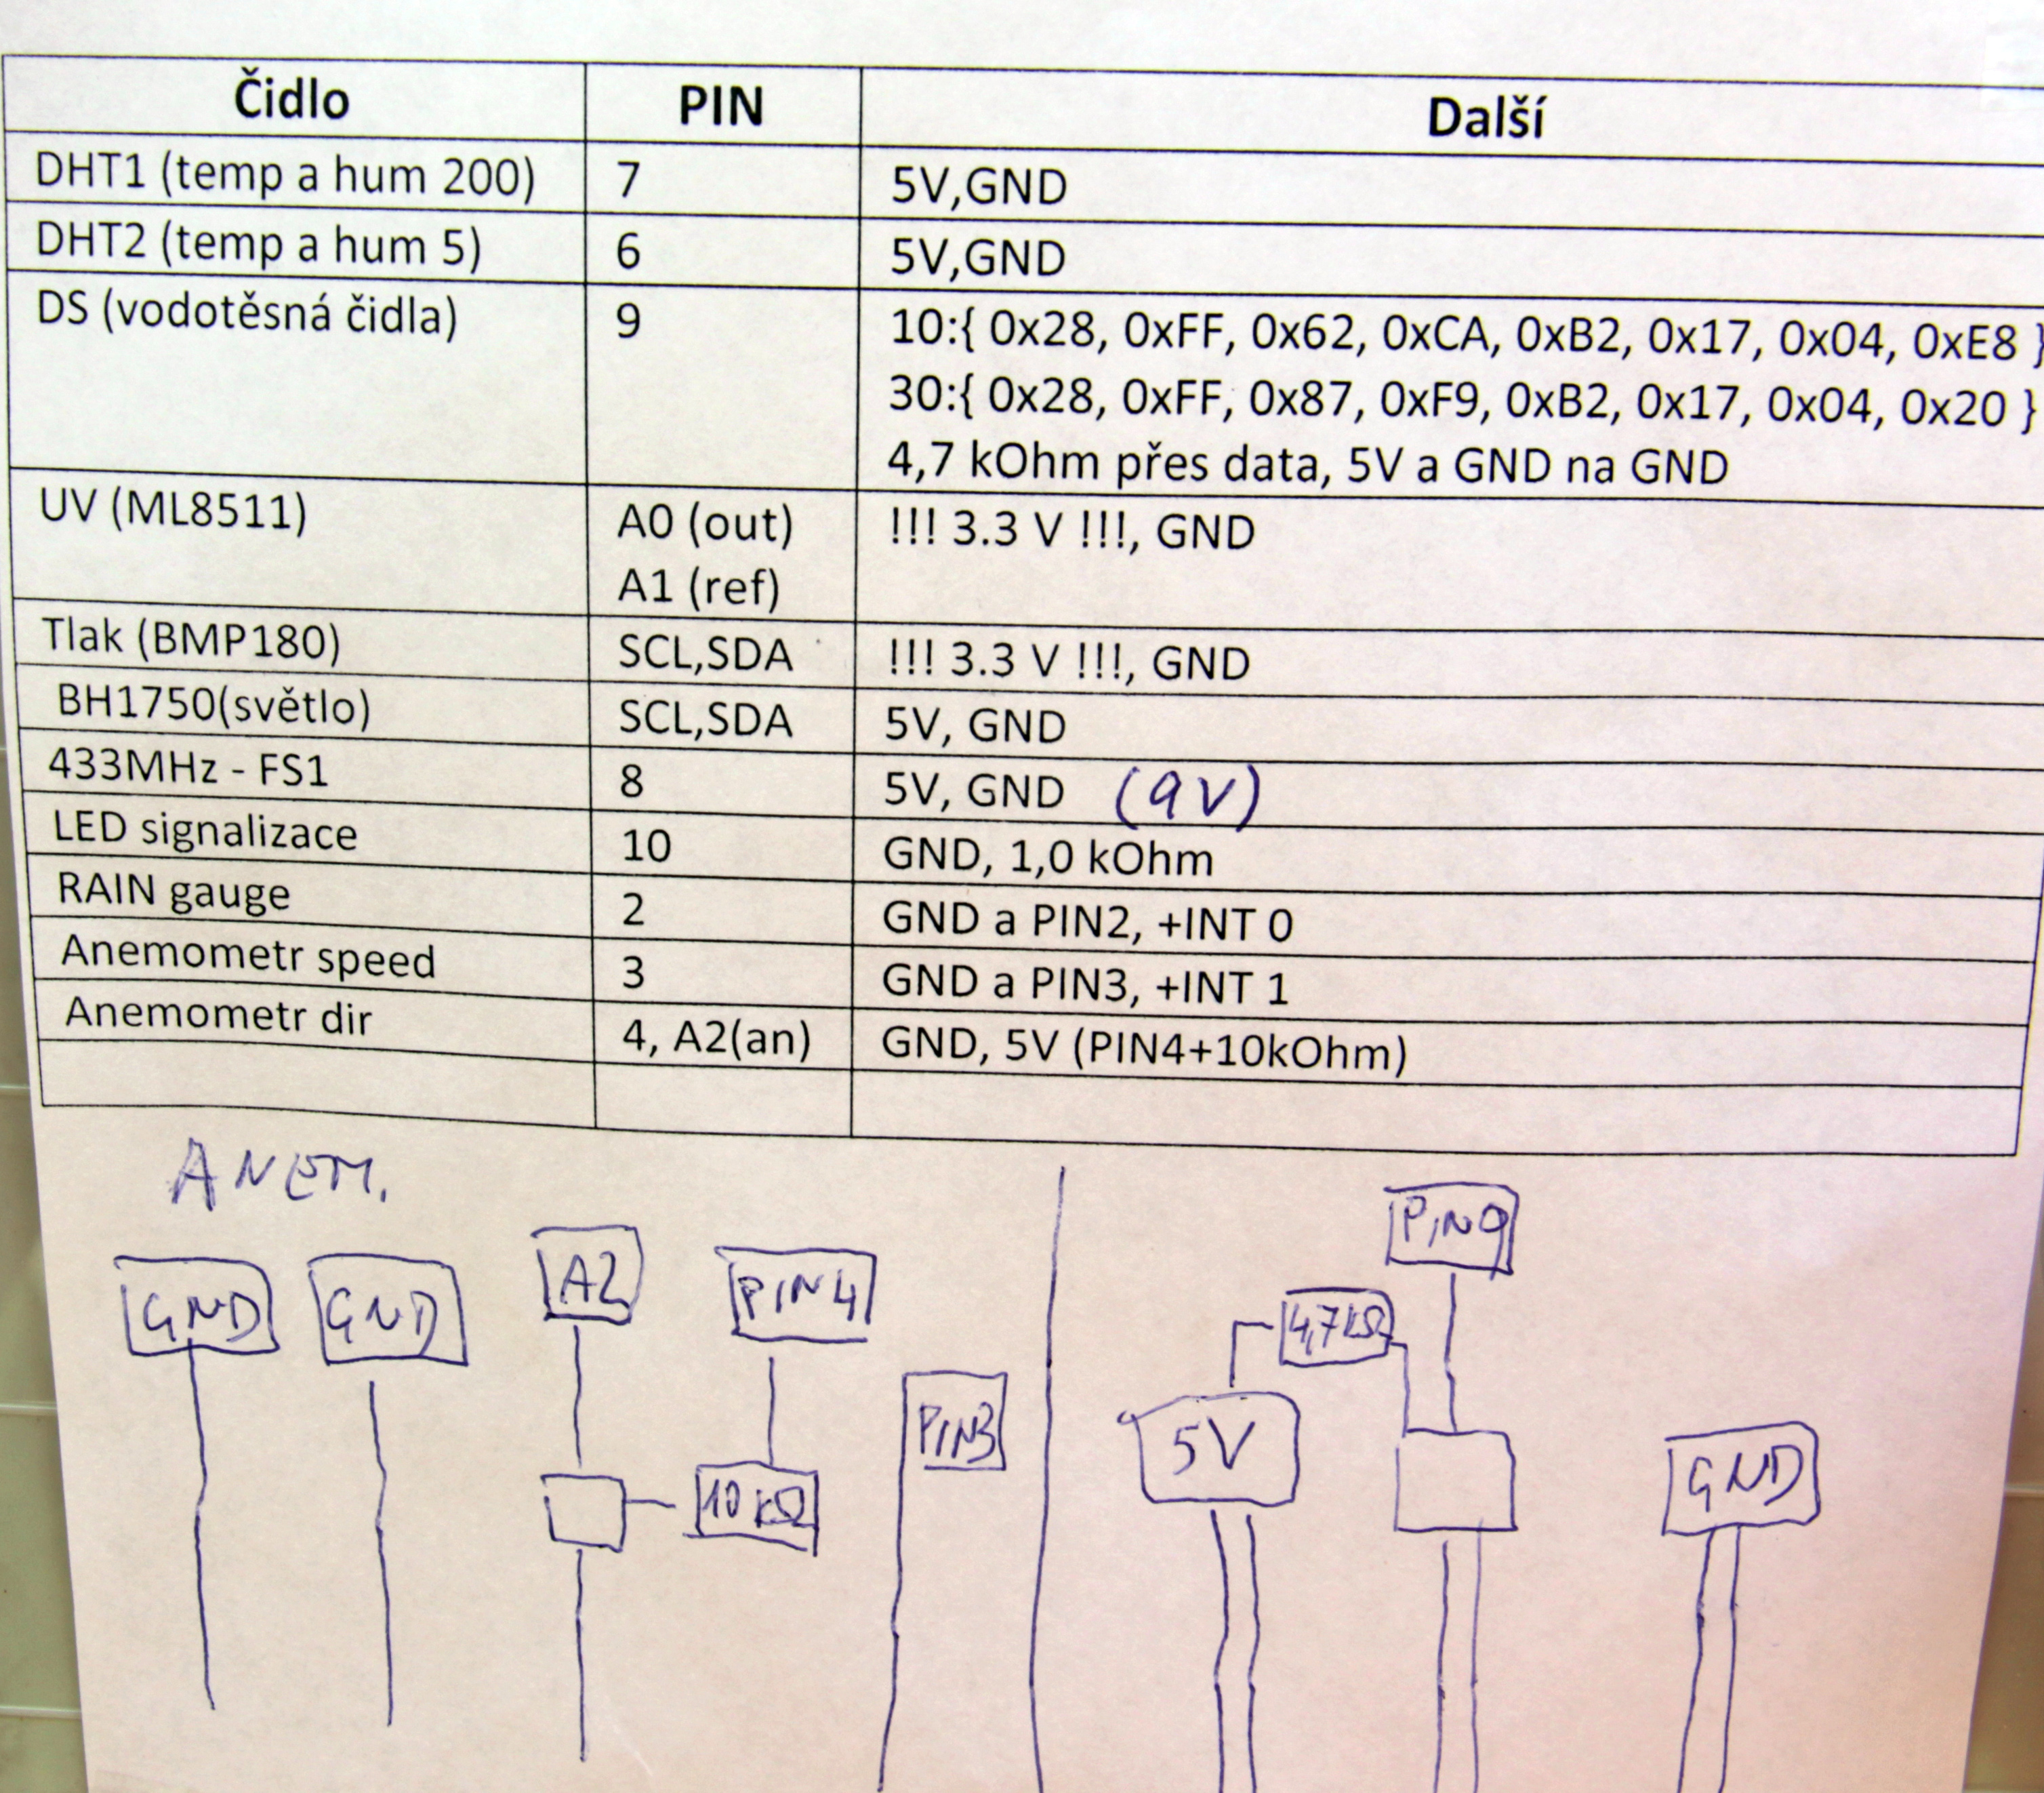 Čidlo PIN Další
DHT1 (temp a hum 200) 7 5V,GND
DHT2 (temp a hum 5) 6 5V,GND
DS (vodotěsná čidla) 9 10:{ 0x28, 0xFF, 0x62, 0xCA, 0xB2, 0x17, 0x04, 0xE8 }
30:{ 0x28, 0xFF, 0x87, 0xF9, 0xB2, 0x17, 0x04, 0x20 }
4,7 kOhm přes data, 5V a GND na GND
UV (ML8511) A0 (out) !!! 3.3 V !!!, GND
A1 (ref)
Tlak (BMP180) SCL,SDA !!! 3.3 V !!!, GND
BH1750(světlo) SCL,SDA 5V, GND
433MHz - FS1 8 5V, GND (9V)
LED signalizace 10 GND, 1,0 kOhm
RAIN gauge 2 GND a PIN2, +INT 0
Anemometr speed 3 GND a PIN3, +INT 1
Anemometr dir 4, A2(an) GND, 5V (PIN4+10kOhm)
ANEM.
GND GND A2 PIN4
10 kΩ
PIN3
PIN9
4,7 kΩ
5V
GND